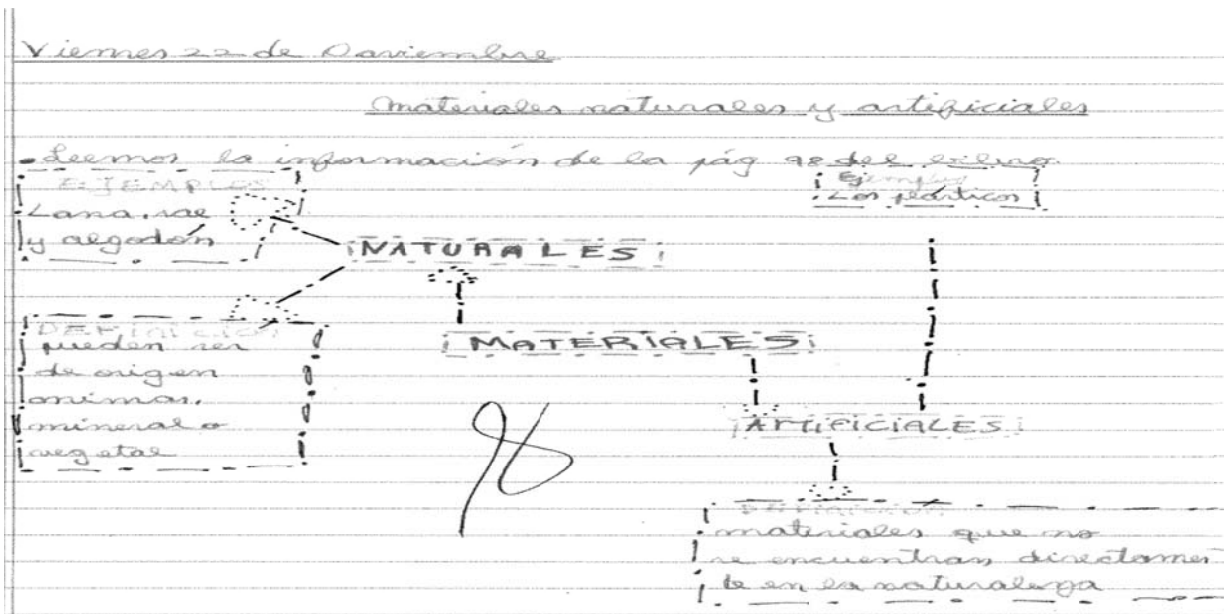 Viernes 22 de Noviembre
Materiales naturales y artificiales
Leemos la información de la pág 98 del
EJEMPLOS
Lana, sal
y algodón
Ejemplos
Los plásticos
NATURALES
MATERIALES
DEFINICIÓN
pueden ser
de origen
animal,
mineral o
vegetal
ARTIFICIALES
DEFINICIÓN
materiales que no
se encuentran directamen
te en la naturaleza